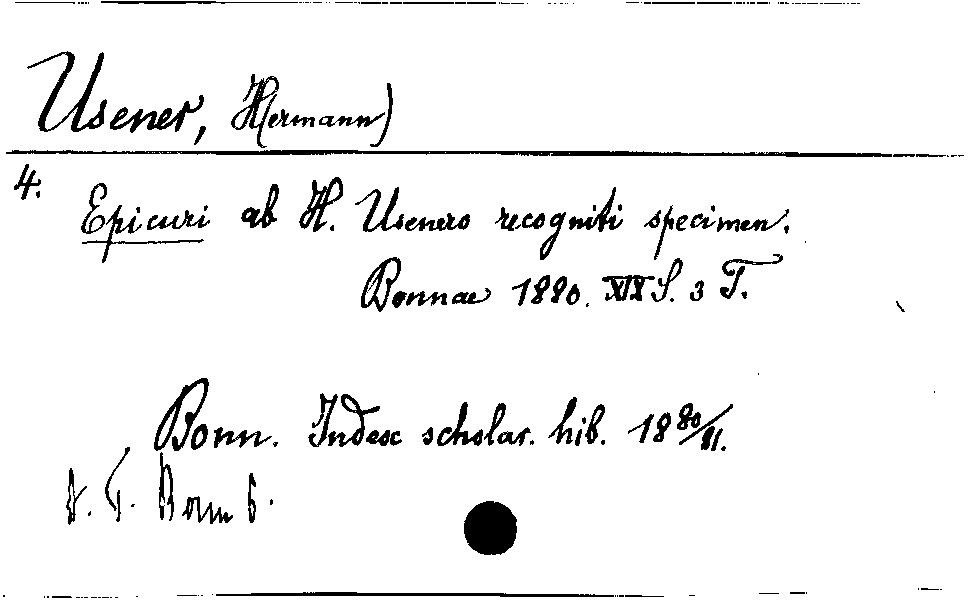 Usener, H(ermann)
4.
Epicuri ab H. Usenero recogniti specimen.
Bonnae 1880. XIX S. 3 T.
Bonn. Index scholar. hib. 1880/81.
Bonn 6.